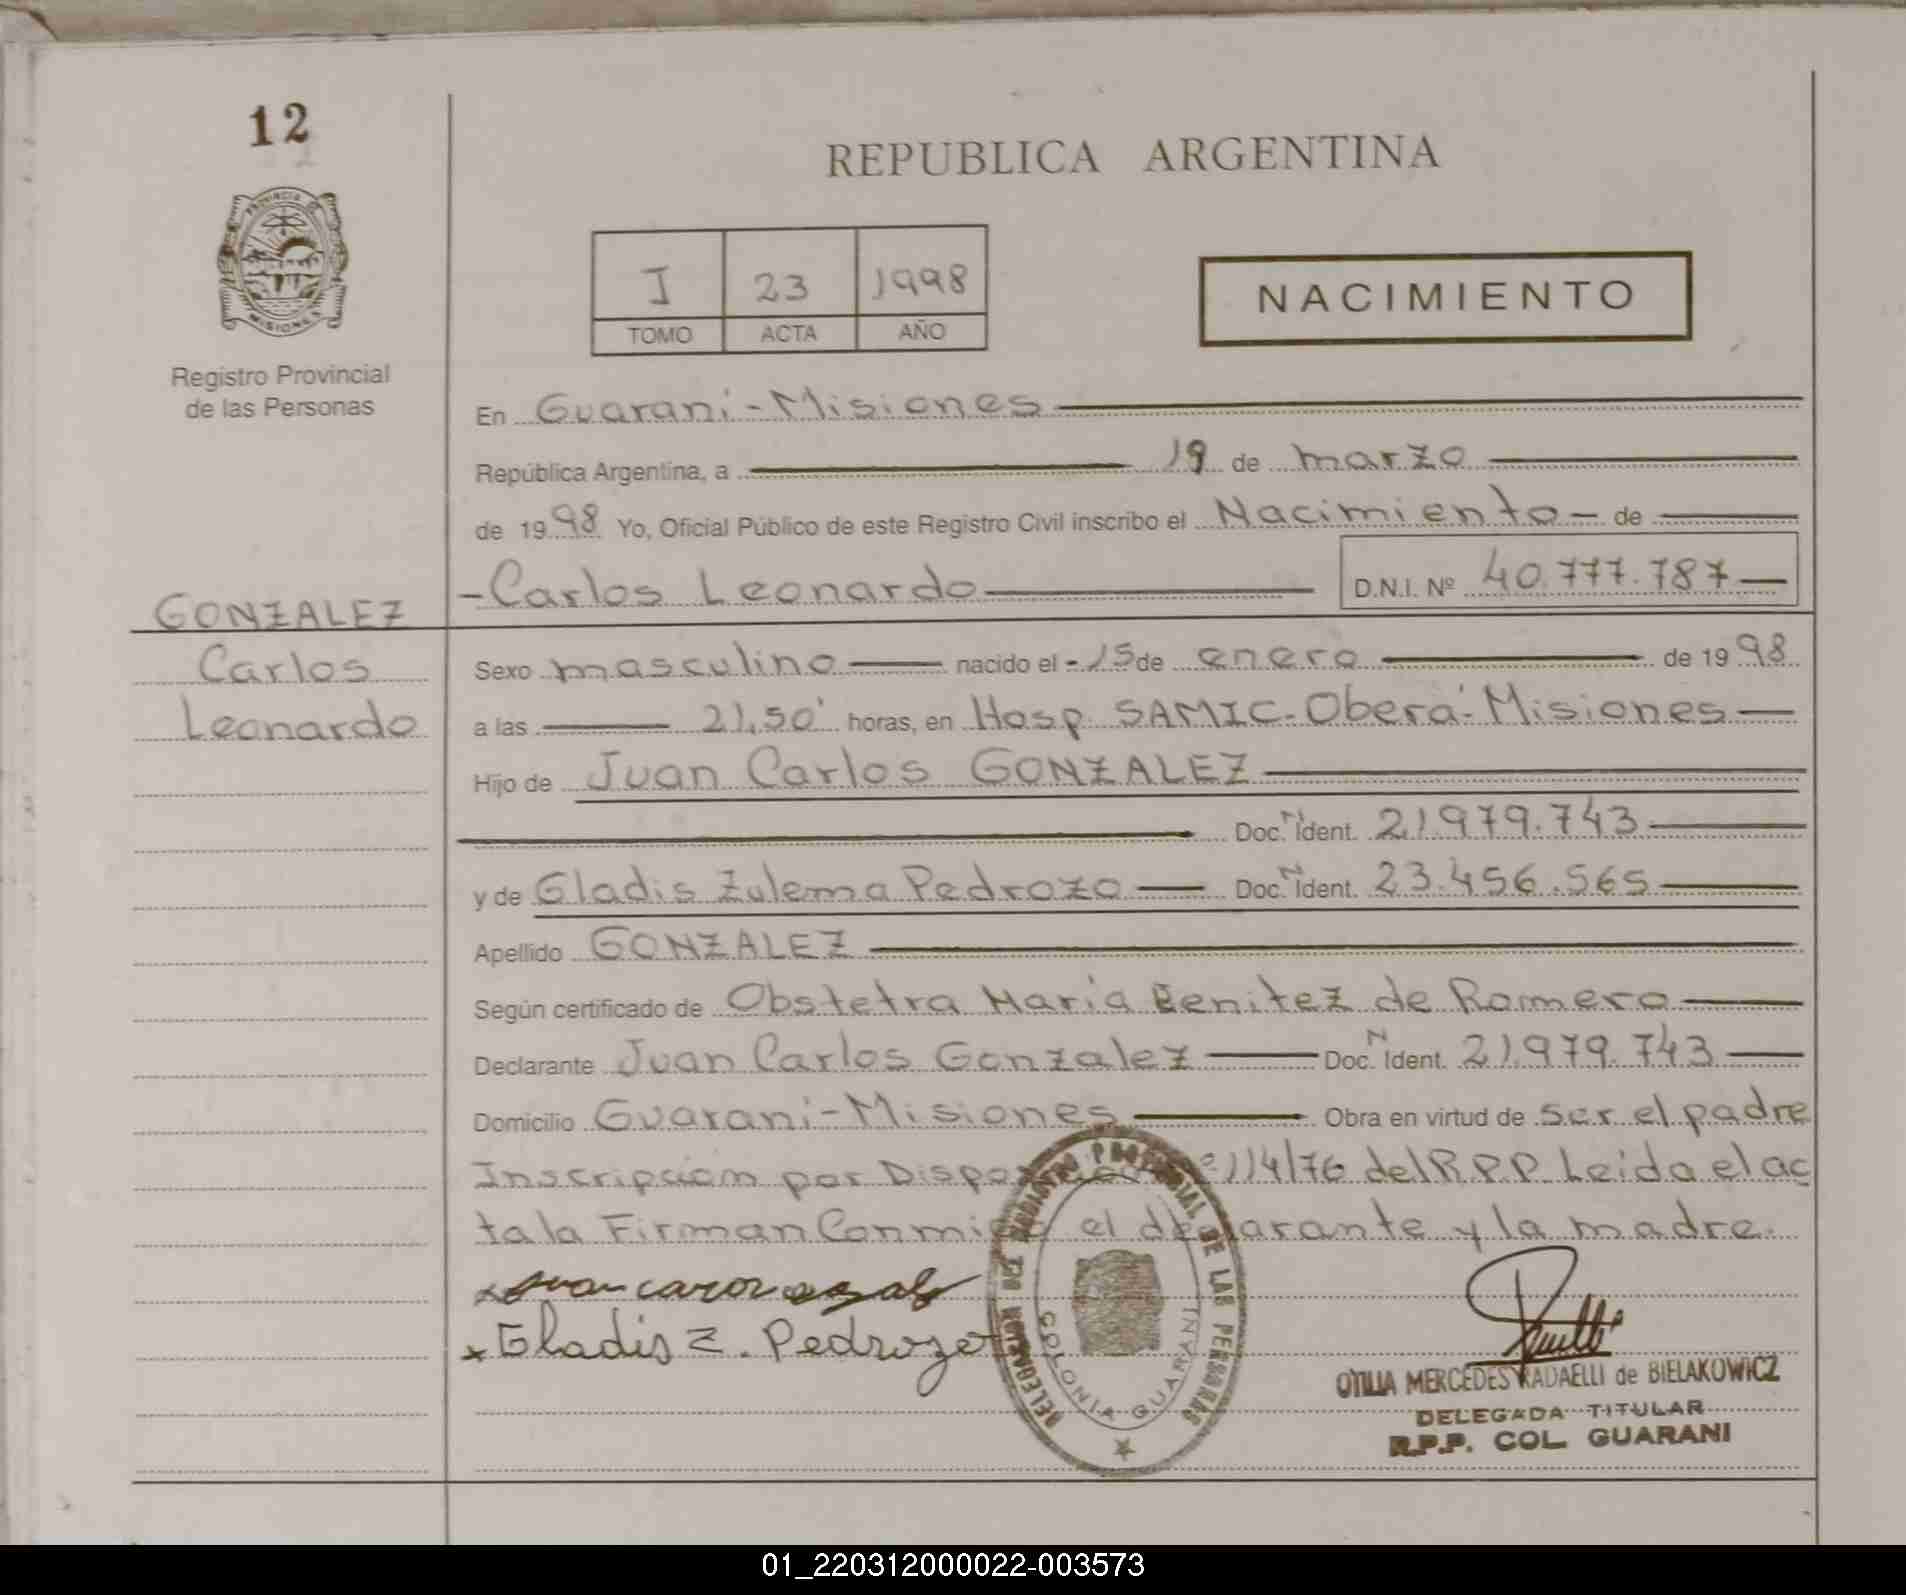 12
REPUBLICA ARGENTINA
PROVINCIA DE
MISIONES
I 23 1998
TOMO ACTA AÑO
NACIMIENTO
Registro Provincial
de las Personas
En Guarani - Misiones
República Argentina, a 19 de marzo
de 1998 Yo, Oficial Público de este Registro Civil inscribo el Nacimiento - de
- Carlos Leonardo D.N.I. Nº 40.777.787
GONZALEZ
Carlos
Leonardo
Sexo masculino nacido el - 15 de enero de 1998
a las 21,50' horas, en Hosp. SAMIC - Oberá - Misiones
Hijo de Juan Carlos GONZALEZ
Doc. N Ident. 21.979.743
y de Gladis Zulema Pedrozo Doc. N Ident. 23.456.565
Apellido GONZALEZ
Según certificado de Obstetra Maria Benitez de Romero
Declarante Juan Carlos Gonzalez Doc. N Ident. 21.979.743
Domicilio Guarani - Misiones Obra en virtud de ser el padre
Inscripción por 114/76 del R.P.P. Leida el ac
ta la Firman Conmigo el declarante y la madre.
x Juan
x Gladis Z. Pedrozo
DELEGACION DEL REGISTRO PROVINCIAL DE LAS PERSONAS
COLONIA GUARANI
OTILIA MERCEDES RADAELLI de BIELAKOWICZ
DELEGADA TITULAR
R.P.P. COL. GUARANI
01_220312000022-003573